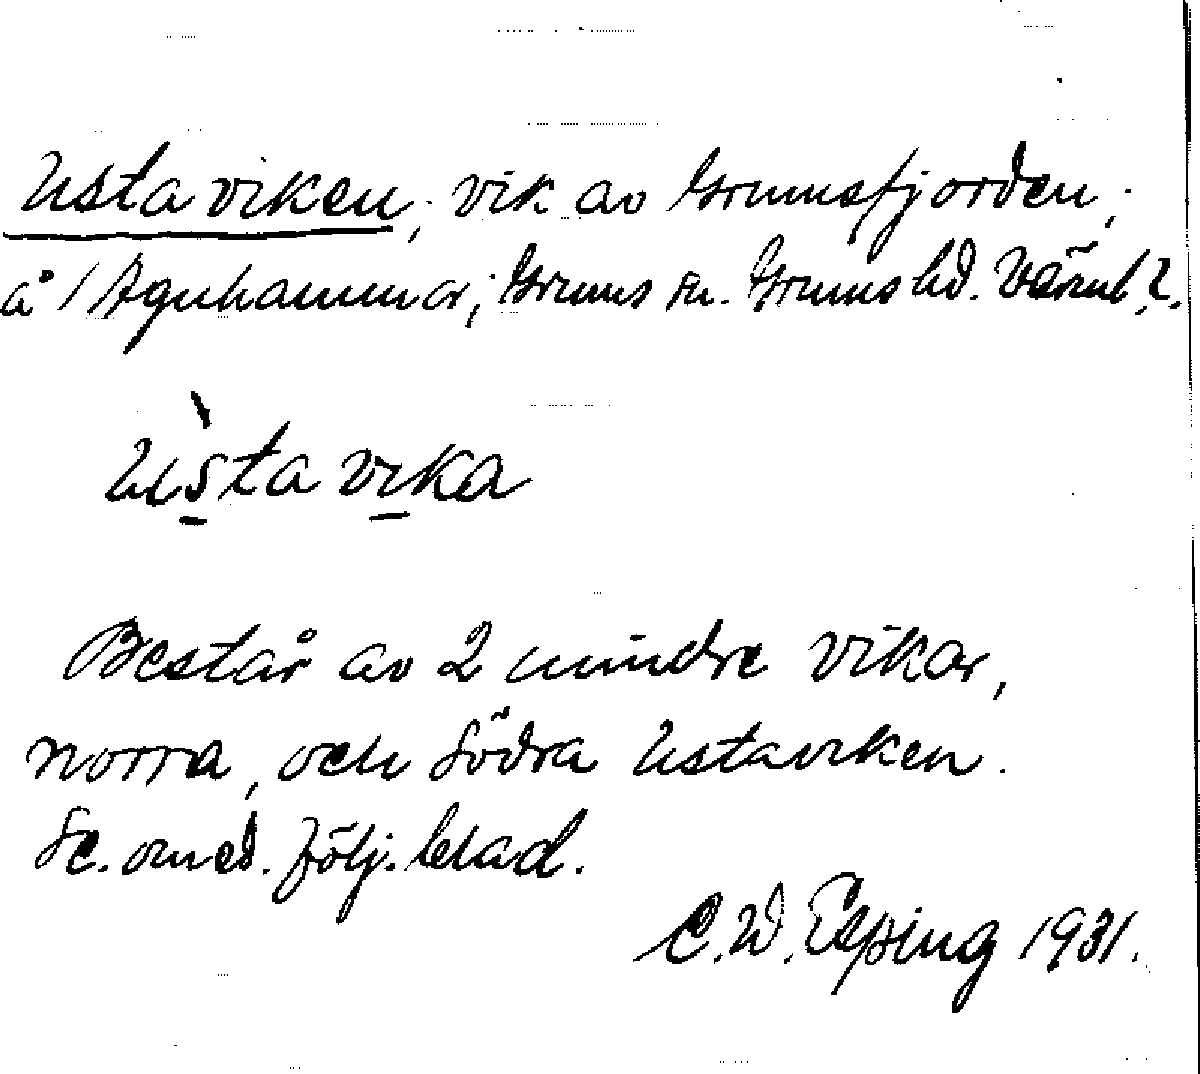 Ustaviken, vik av Grumsfjorden,
å 1 Agnhammar, Grums sn. Grums hd. Värml.
Ùstavika
Består av 2 mindre vikar,
norra, och södra Ustaviken.
Se. omed. följ. blad.
C.W. Esping 1931.